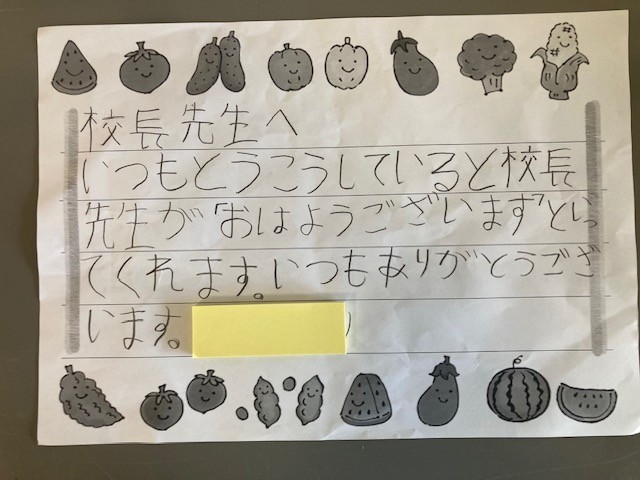 校長先生へ
いつもとうこうしていると校長
先生が「おはようございます」といっ
てくれます。いつもありがとうござ
います。